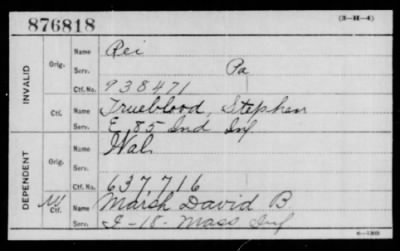 876818
(3-H-4)
INVALID
Orig.
Name Rei
Serv. Pa
Ctf. No. 938471
Ctf.
Name Trueblood, Stephen
Serv. E 85 Ind Inf
DEPENDENT
Orig.
Name Wal
Serv.
Ctf. No. 637,716
W Ctf.
Name Marsh David B
Serv. I-18-Mass Inf